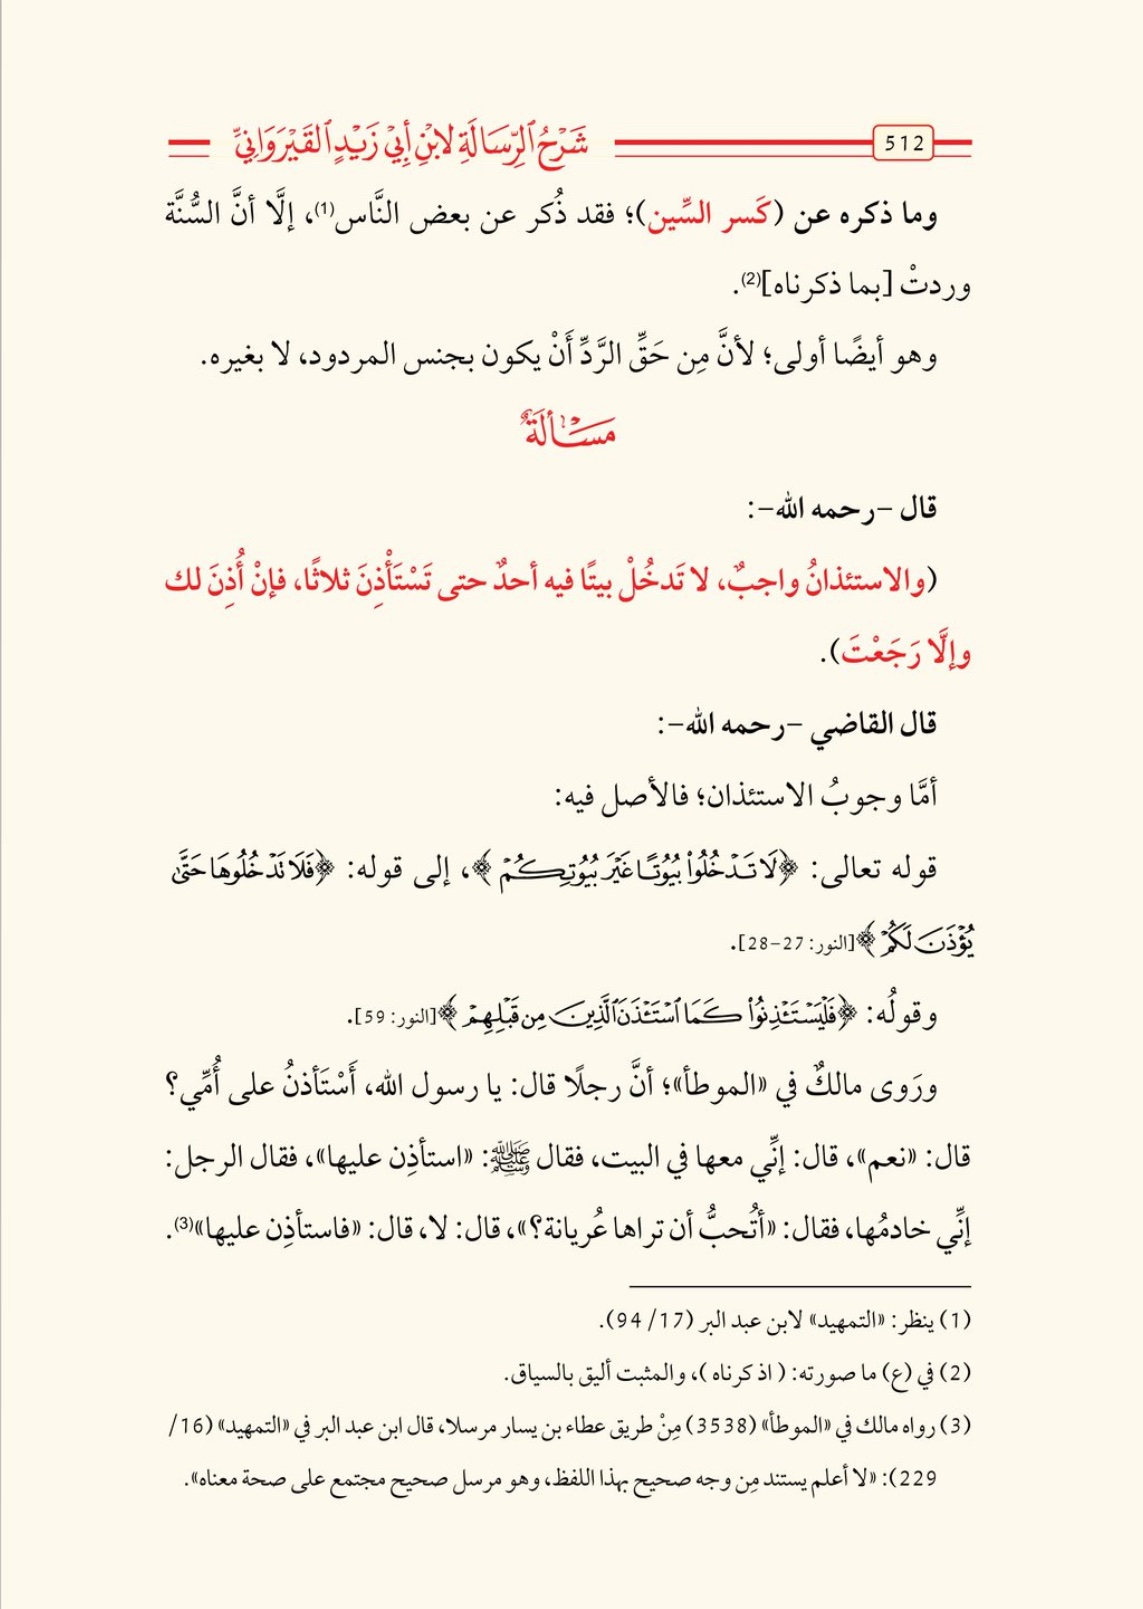 512
شَرْحُ الرِّسَالَةِ لابْنِ أَبِيْ زَيْدٍ القَيْرَوَانِيِّ
وما ذكره عن (كَسر السِّين)؛ فقد ذُكر عن بعض النَّاس(1)، إلَّا أنَّ السُّنَّة
وردتْ [بما ذكرناه](2).
وهو أيضًا أولى؛ لأنَّ مِن حَقِّ الرَّدِّ أَنْ يكون بجنس المردود، لا بغيره.
مَسْأَلَةٌ
قال -رحمه الله-:
(والاستئذانُ واجبٌ، لا تَدخُلْ بيتًا فيه أحدٌ حتى تَسْتَأْذِنَ ثلاثًا، فإنْ أُذِنَ لك
وإلَّا رَجَعْتَ).
قال القاضي -رحمه الله-:
أمَّا وجوبُ الاستئذان؛ فالأصل فيه:
قوله تعالى: ﴿لَا تَدْخُلُوا۟ بُيُوتًا غَيْرَ بُيُوتِكُمْ﴾، إلى قوله: ﴿فَلَا تَدْخُلُوهَا حَتَّىٰ
يُؤْذَنَ لَكُمْ﴾[النور: 27-28].
وقولُه: ﴿فَلْيَسْتَـْٔذِنُوا۟ كَمَا ٱسْتَـْٔذَنَ ٱلَّذِينَ مِن قَبْلِهِمْ﴾[النور: 59].
ورَوى مالكٌ في «الموطأ»؛ أنَّ رجلًا قال: يا رسول الله، أَسْتَأذنُ على أُمِّي؟
قال: «نعم»، قال: إنِّي معها في البيت، فقال ﷺ: «استأذِن عليها»، فقال الرجل:
إنِّي خادمُها، فقال: «أتُحبُّ أن تراها عُريانة؟»، قال: لا، قال: «فاستأذِن عليها»(3).
(1) ينظر: «التمهيد» لابن عبد البر (17/ 94).
(2) في (ع) ما صورته: ( اذكرناه )، والمثبت أليق بالسياق.
(3) رواه مالك في «الموطأ» (3538) مِنْ طريق عطاء بن يسار مرسلا، قال ابن عبد البر في «التمهيد» (16/
229): «لا أعلم يستند مِن وجه صحيح بهذا اللفظ، وهو مرسل صحيح مجتمع على صحة معناه».